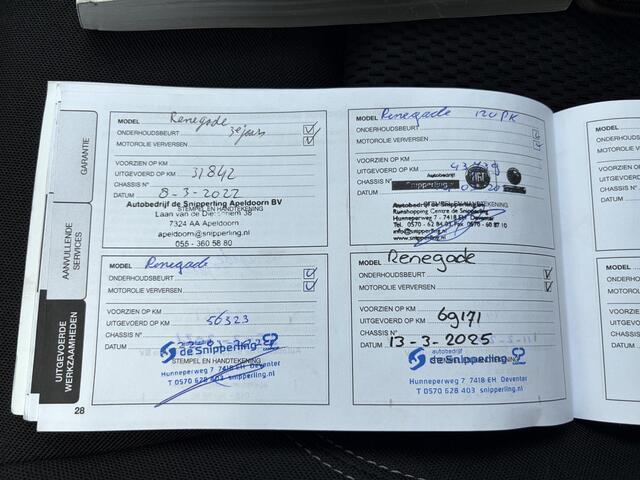 GARANTIE
AANVULLENDE SERVICES
UITGEVOERDE WERKZAAMHEDEN
28
MODEL Renegade
ONDERHOUDSBEURT 3 jaars
MOTOROLIE VERVERSEN
VOORZIEN OP KM
UITGEVOERD OP KM 31842
CHASSIS N°
DATUM 8-3-2022
Autobedrijf de Snipperling Apeldoorn BV
STEMPEL EN HANDTEKENING
Laan van de Dierenriem 38
7324 AA Apeldoorn
apeldoorn@snipperling.nl
055 - 360 58 80
MODEL Renegade 120 PK
ONDERHOUDSBEURT
MOTOROLIE VERVERSEN
VOORZIEN OP KM
UITGEVOERD OP KM
CHASSIS N°
Autobedrijf
Snipperling
FIAT
DATUM
Autobedrijf de Snipperling
Runshopping Centre de Snipperling
Hunneperweg 7 - 7418 EH Deventer
Tel. 0570 - 62 84 03
info@snipperling.nl
www.snipperling.nl
MODEL Renegade
ONDERHOUDSBEURT
MOTOROLIE VERVERSEN
VOORZIEN OP KM
UITGEVOERD OP KM 56323
CHASSIS N°
DATUM
de Snipperling
STEMPEL EN HANDTEKENING
Hunneperweg 7 7418 EH Deventer
T 0570 628 403 snipperling.nl
MODEL Renegade
ONDERHOUDSBEURT
MOTOROLIE VERVERSEN
VOORZIEN OP KM
UITGEVOERD OP KM 69171
CHASSIS N°
DATUM 13-3-2025
autobedrijf
de Snipperling
STEMPEL EN HANDTEKENING
Hunneperweg 7 7418 EH Deventer
T 0570 628 403 snipperling.nl
MODEL
ONDERHOUDSB
MOTOROLIE VE
VOORZIEN OP
UITGEVOERD
CHASSIS N°
DATUM
MODEL
ONDERHOUD
MOTOROLIE
VOORZIEN O
UITGEVOER
CHASSIS N°
DATUM